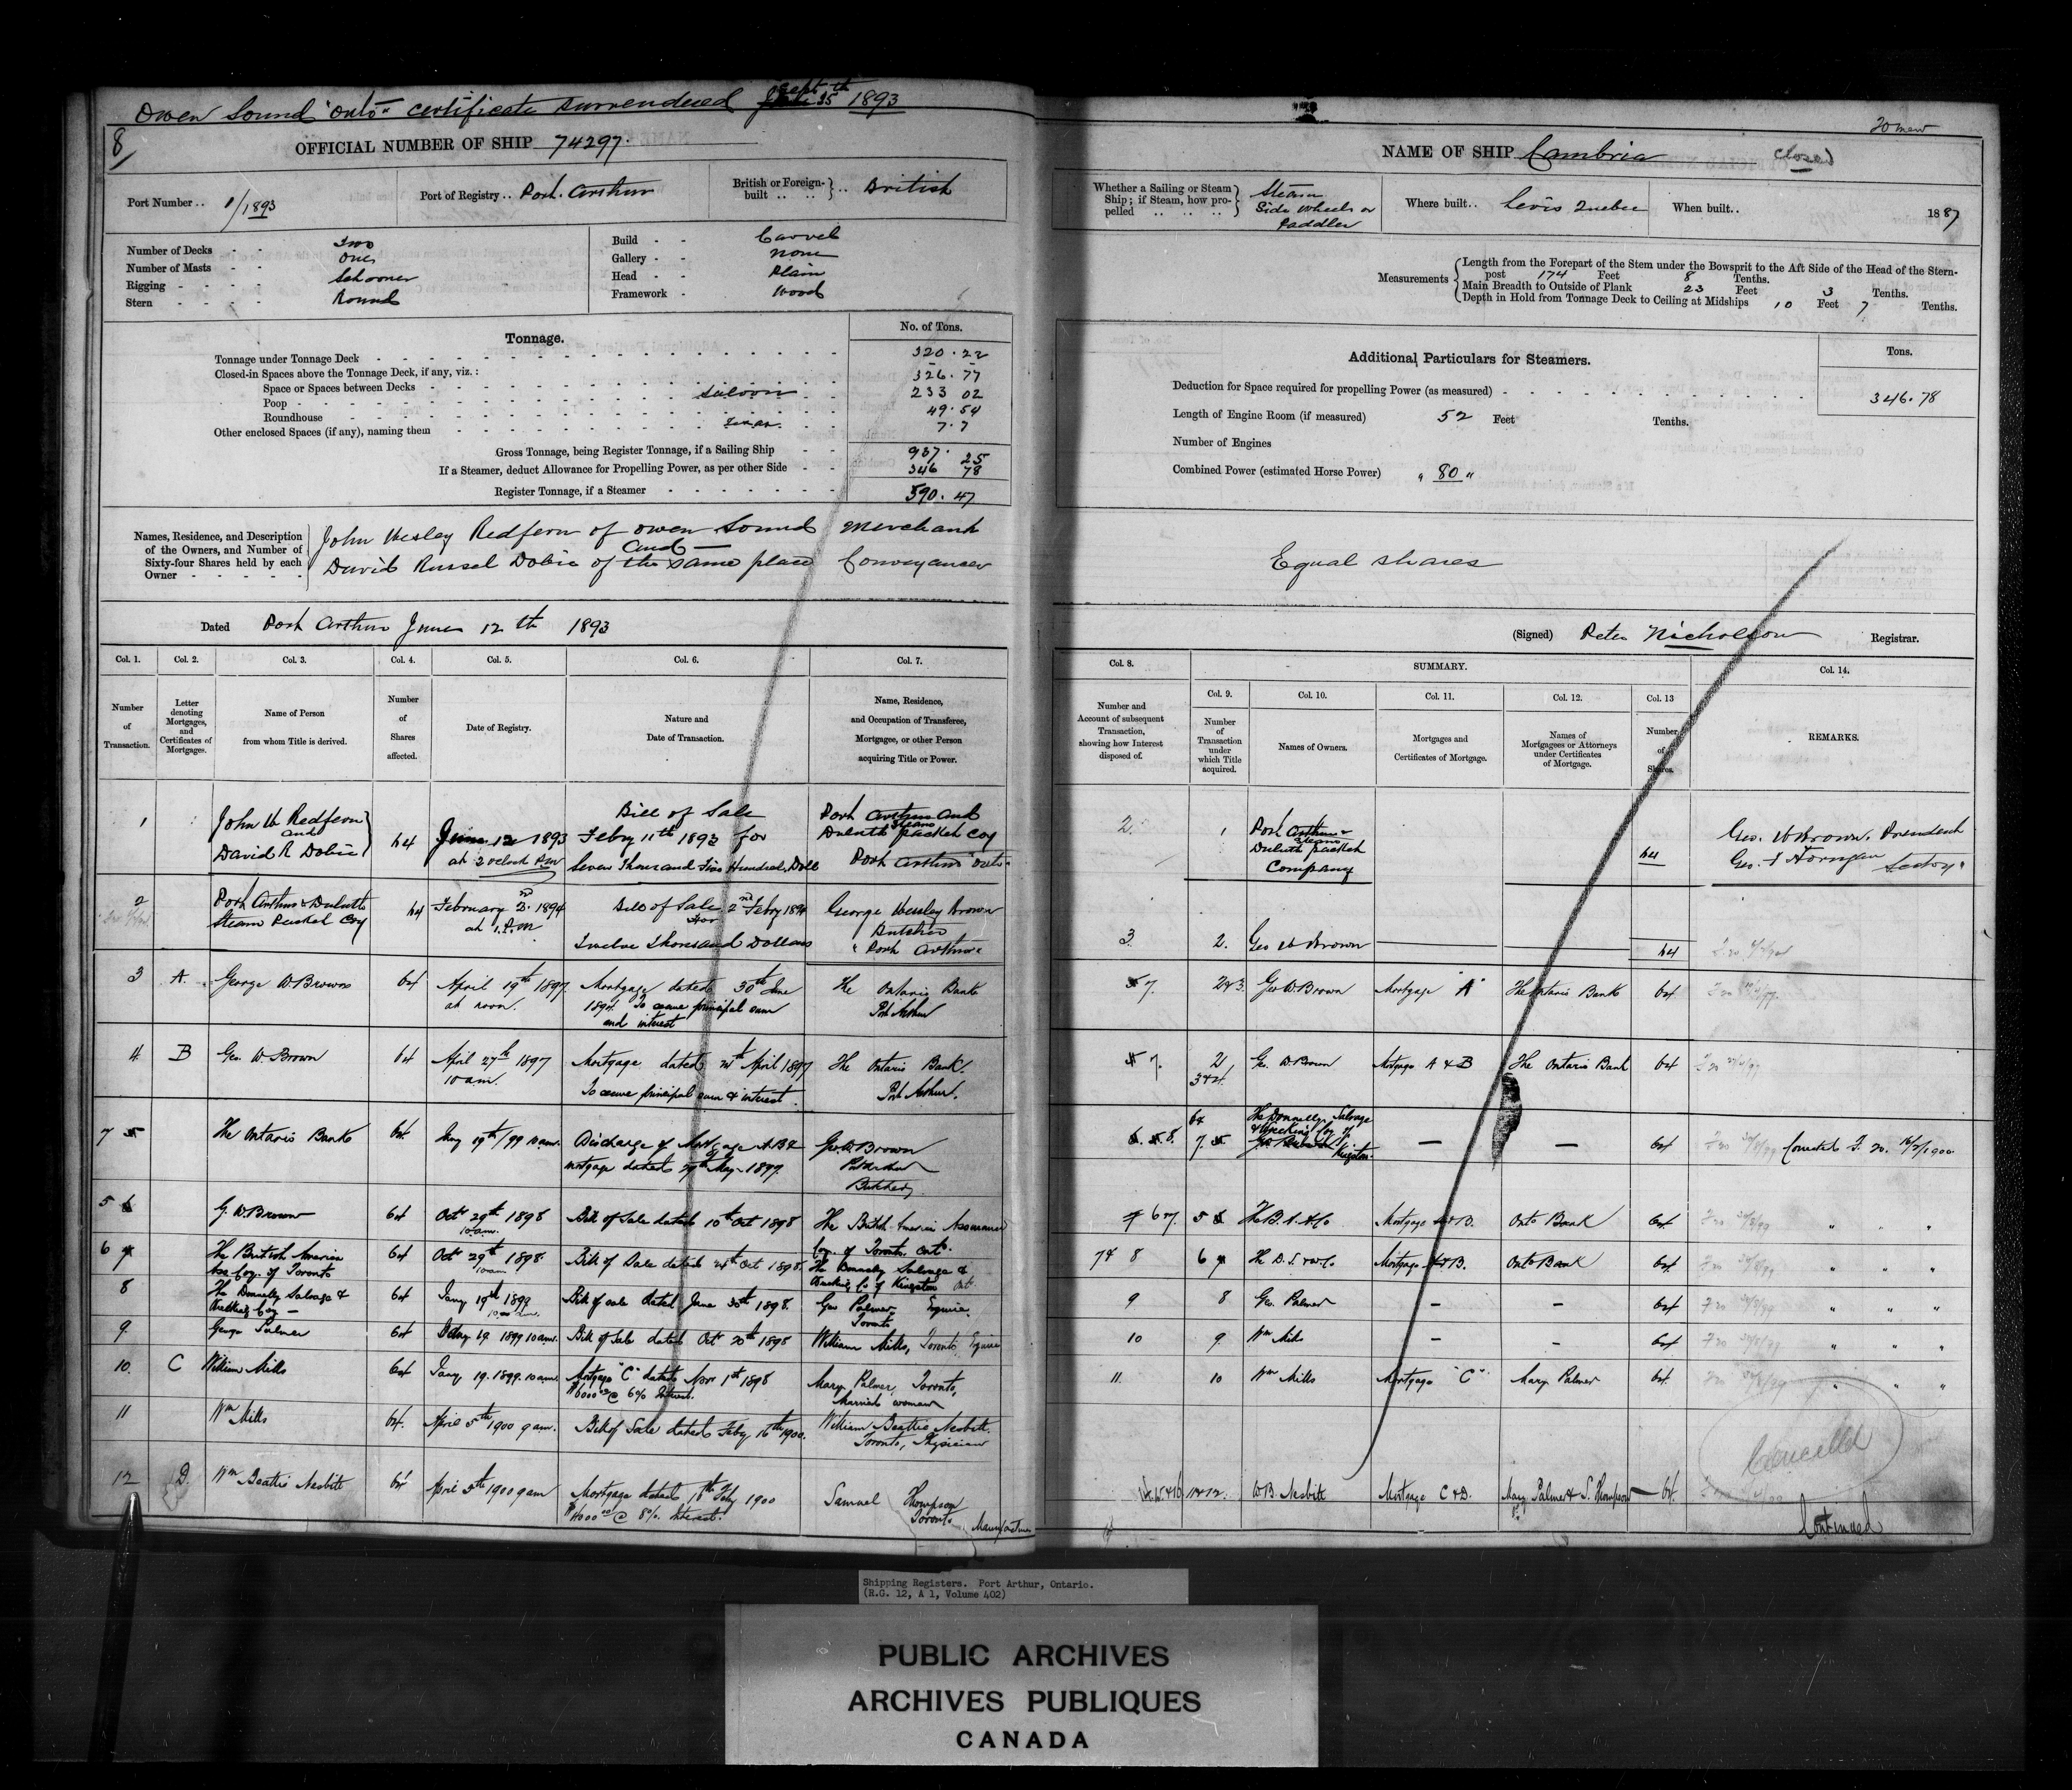 Owen Sound "Onto" certificate surrendered Sept 25th 1893
8/
OFFICIAL NUMBER OF SHIP 74297.
Port Number .. 1/1893
Port of Registry .. Port Arthur
British or Foreign-built .. .. } .. British
Number of Decks - - Two
Number of Masts - - One
Rigging - - - - Schooner
Stern - - - - Round
Build - - Carvel
Gallery - - None
Head - - Plain
Framework - Wood
Tonnage.
No. of Tons.
Tonnage under Tonnage Deck 320.22
Closed-in Spaces above the Tonnage Deck, if any, viz.:
Space or Spaces between Decks 326.77
Poop Saloon 233 02
Roundhouse 49.54
Other enclosed Spaces (if any), naming them 7.7
Gross Tonnage, being Register Tonnage, if a Sailing Ship 937.25
If a Steamer, deduct Allowance for Propelling Power, as per other Side 346 78
Register Tonnage, if a Steamer 590.47
Names, Residence, and Description of the Owners, and Number of Sixty-four Shares held by each Owner
John Wesley Redfern of Owen Sound Merchant
and
David Russel Dobie of the same place Conveyancer
Dated Port Arthur June 12th 1893
Col. 1. Col. 2. Col. 3. Col. 4. Col. 5. Col. 6. Col. 7.
Number of Transaction.
Letter denoting Mortgages, and Certificates of Mortgages.
Name of Person from whom Title is derived.
Number of Shares affected.
Date of Registry.
Nature and Date of Transaction.
Name, Residence, and Occupation of Transferee, Mortgagee, or other Person acquiring Title or Power.
1 John W Redfern and David R Dobie 64 June 12 1893 at 2 oclock P.M Bill of Sale Feby 11th 1893 for Seven Thousand Two Hundred Doll Port Arthur and Duluth Steam Packet Coy Port Arthur "Onto"
2 Port Arthur & Duluth Steam Packet Coy 64 February 2nd 1894 at 1 P.M Bill of Sale 2nd Feby 1894 for Twelve Thousand Dollars George Wesley Brown Butcher Port Arthur
3 A. George W Brown 64 April 19th 1897 at noon. Mortgage dated 30th June 1894. To secure principal sum and interest The Ontario Bank Port Arthur
4 B Geo. W. Brown 64 April 27th 1897 10 am. Mortgage dated April 1897 To secure principal sum & interest. The Ontario Bank. Port Arthur.
7 5 The Ontario Bank 64 19th/99 10 am. Discharge of Mortgage A B & mortgage dated 29th May 1899. Geo. W. Brown Port Arthur Butcher
5 6 G. W. Brown 64 Oct 29th 1898 10 am. Bill of Sale dated 10th Oct 1898 The British America Assurance Coy. of Toronto Ont.
6 7 The British America Ass Coy. of Toronto 64 Oct 29th 1898 10 am Bill of Sale dated 24th Oct 1898. The Donnelly Salvage & Wrecking Co of Kingston Ont.
8 The Donnelly Salvage & Wrecking Coy 64 Jany 19th 1899 10 am. Bill of sale dated June 30th 1898. Geo Palmer Esquire. Toronto
9. George Palmer 64 Jany 19 1899 10 am. Bill of Sale dated Oct 20th 1898 William Mills, Toronto Esquire
10. C William Mills 64 Jany 19. 1899. 10 am. Mortgage "C" dated Nov 1st 1898 $6000 00 @ 6% Interest. Mary Palmer, Toronto, Married woman
11 Wm Mills 64. April 5th 1900 9 am. Bill of Sale dated Feby 16th 1900. William Beattie Nesbitt. Toronto, Physician
12 D. Wm Beattie Nesbitt 64 April 5th 1900 9 am Mortgage dated 16th Feby 1900 $4000 00 @ 8% Interest. Samuel Thompson Toronto Manufacturer
NAME OF SHIP Cambria
Closed
Whether a Sailing or Steam Ship; if Steam, how propelled .. .. .. } Steam Side Wheels or Paddles
Where built .. Levis Quebec
When built .. 1887
Measurements { Length from the Forepart of the Stem under the Bowsprit to the Aft Side of the Head of the Stern-
post 174 Feet 8 Tenths.
Main Breadth to Outside of Plank 23 Feet 3 Tenths.
Depth in Hold from Tonnage Deck to Ceiling at Midships 10 Feet 7 Tenths.
Additional Particulars for Steamers.
Tons.
Deduction for Space required for propelling Power (as measured) 346.78
Length of Engine Room (if measured) 52 Feet Tenths.
Number of Engines
Combined Power (estimated Horse Power) " 80 "
Equal shares
(Signed) Peter Nicholson Registrar.
Col. 8. SUMMARY. Col. 14.
Col. 9. Col. 10. Col. 11. Col. 12. Col. 13
Number and Account of subsequent Transaction, showing how Interest disposed of.
Number of Transaction under which Title acquired.
Names of Owners.
Mortgages and Certificates of Mortgage.
Names of Mortgagees or Attorneys under Certificates of Mortgage.
Number of Shares.
REMARKS.
2. 1 Port Arthur & Duluth Steam Packet Company 64 Geo. W Brown. President
3 2. Geo W Brown 64
7. 2 & 3. Geo W. Brown Mortgage "A" The Ontario Bank 64
7. 2 3 & 4. Geo. W. Brown Mortgage A & B The Ontario Bank 64
8. 7. The Donnelly Salvage & Wrecking Coy of Kingston. — — 64 Corrected
6 & 7. 5 The B. A. A. Co Mortgage A & B. Onto Bank 64 " " "
7 & 8 6 The D. S. & W. Co Mortgage A & B. Onto Bank 64 " " "
9 8 Geo. Palmer — — 64 " " "
10 9. Wm Mills — — 64 " " "
11 10 Wm Mills Mortgage "C" Mary Palmer 64. " " "
Cancelled
11 & 12. W. B. Nesbitt Mortgage C & D. Mary Palmer & S. Thompson 64.
Continued
Shipping Registers. Port Arthur, Ontario.
(R.G. 12, A 1, Volume 402)
PUBLIC ARCHIVES
ARCHIVES PUBLIQUES
CANADA